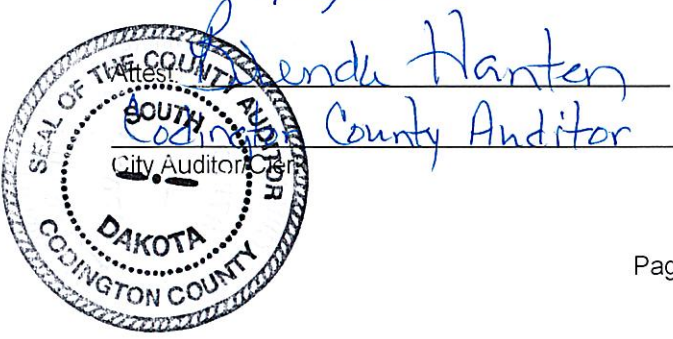 Attest: Brenda Hanten
Codington County Auditor
City Auditor/Clerk
SEAL OF THE COUNTY AUDITOR
SOUTH
DAKOTA
CODINGTON COUNTY
Pag